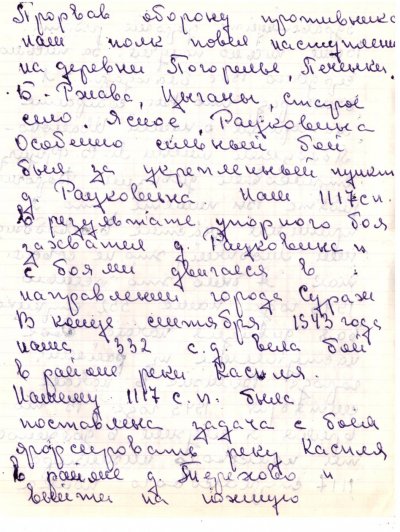 Прорвав оборону противника
наш полк повел наступление
на деревни Погорелье, Печенки.
Б. Ржава, Цыганы, Старое
село. Ясное, Рауковина
Особенно сильный бой
был за укрепленный пункт
д. Рауковина наш 1117 с п.
В результате упорного боя
захватил д. Рауковина и
с боями двигался в
направлении города Сураж
В конце сентября 1943 года
наша 332 с.д. вела бой
в районе реки Каспля.
Нашему 1117 с.п. была
поставлена задача с боем
форсировать реку Каспля
в районе д Терехово и
выйти на южную